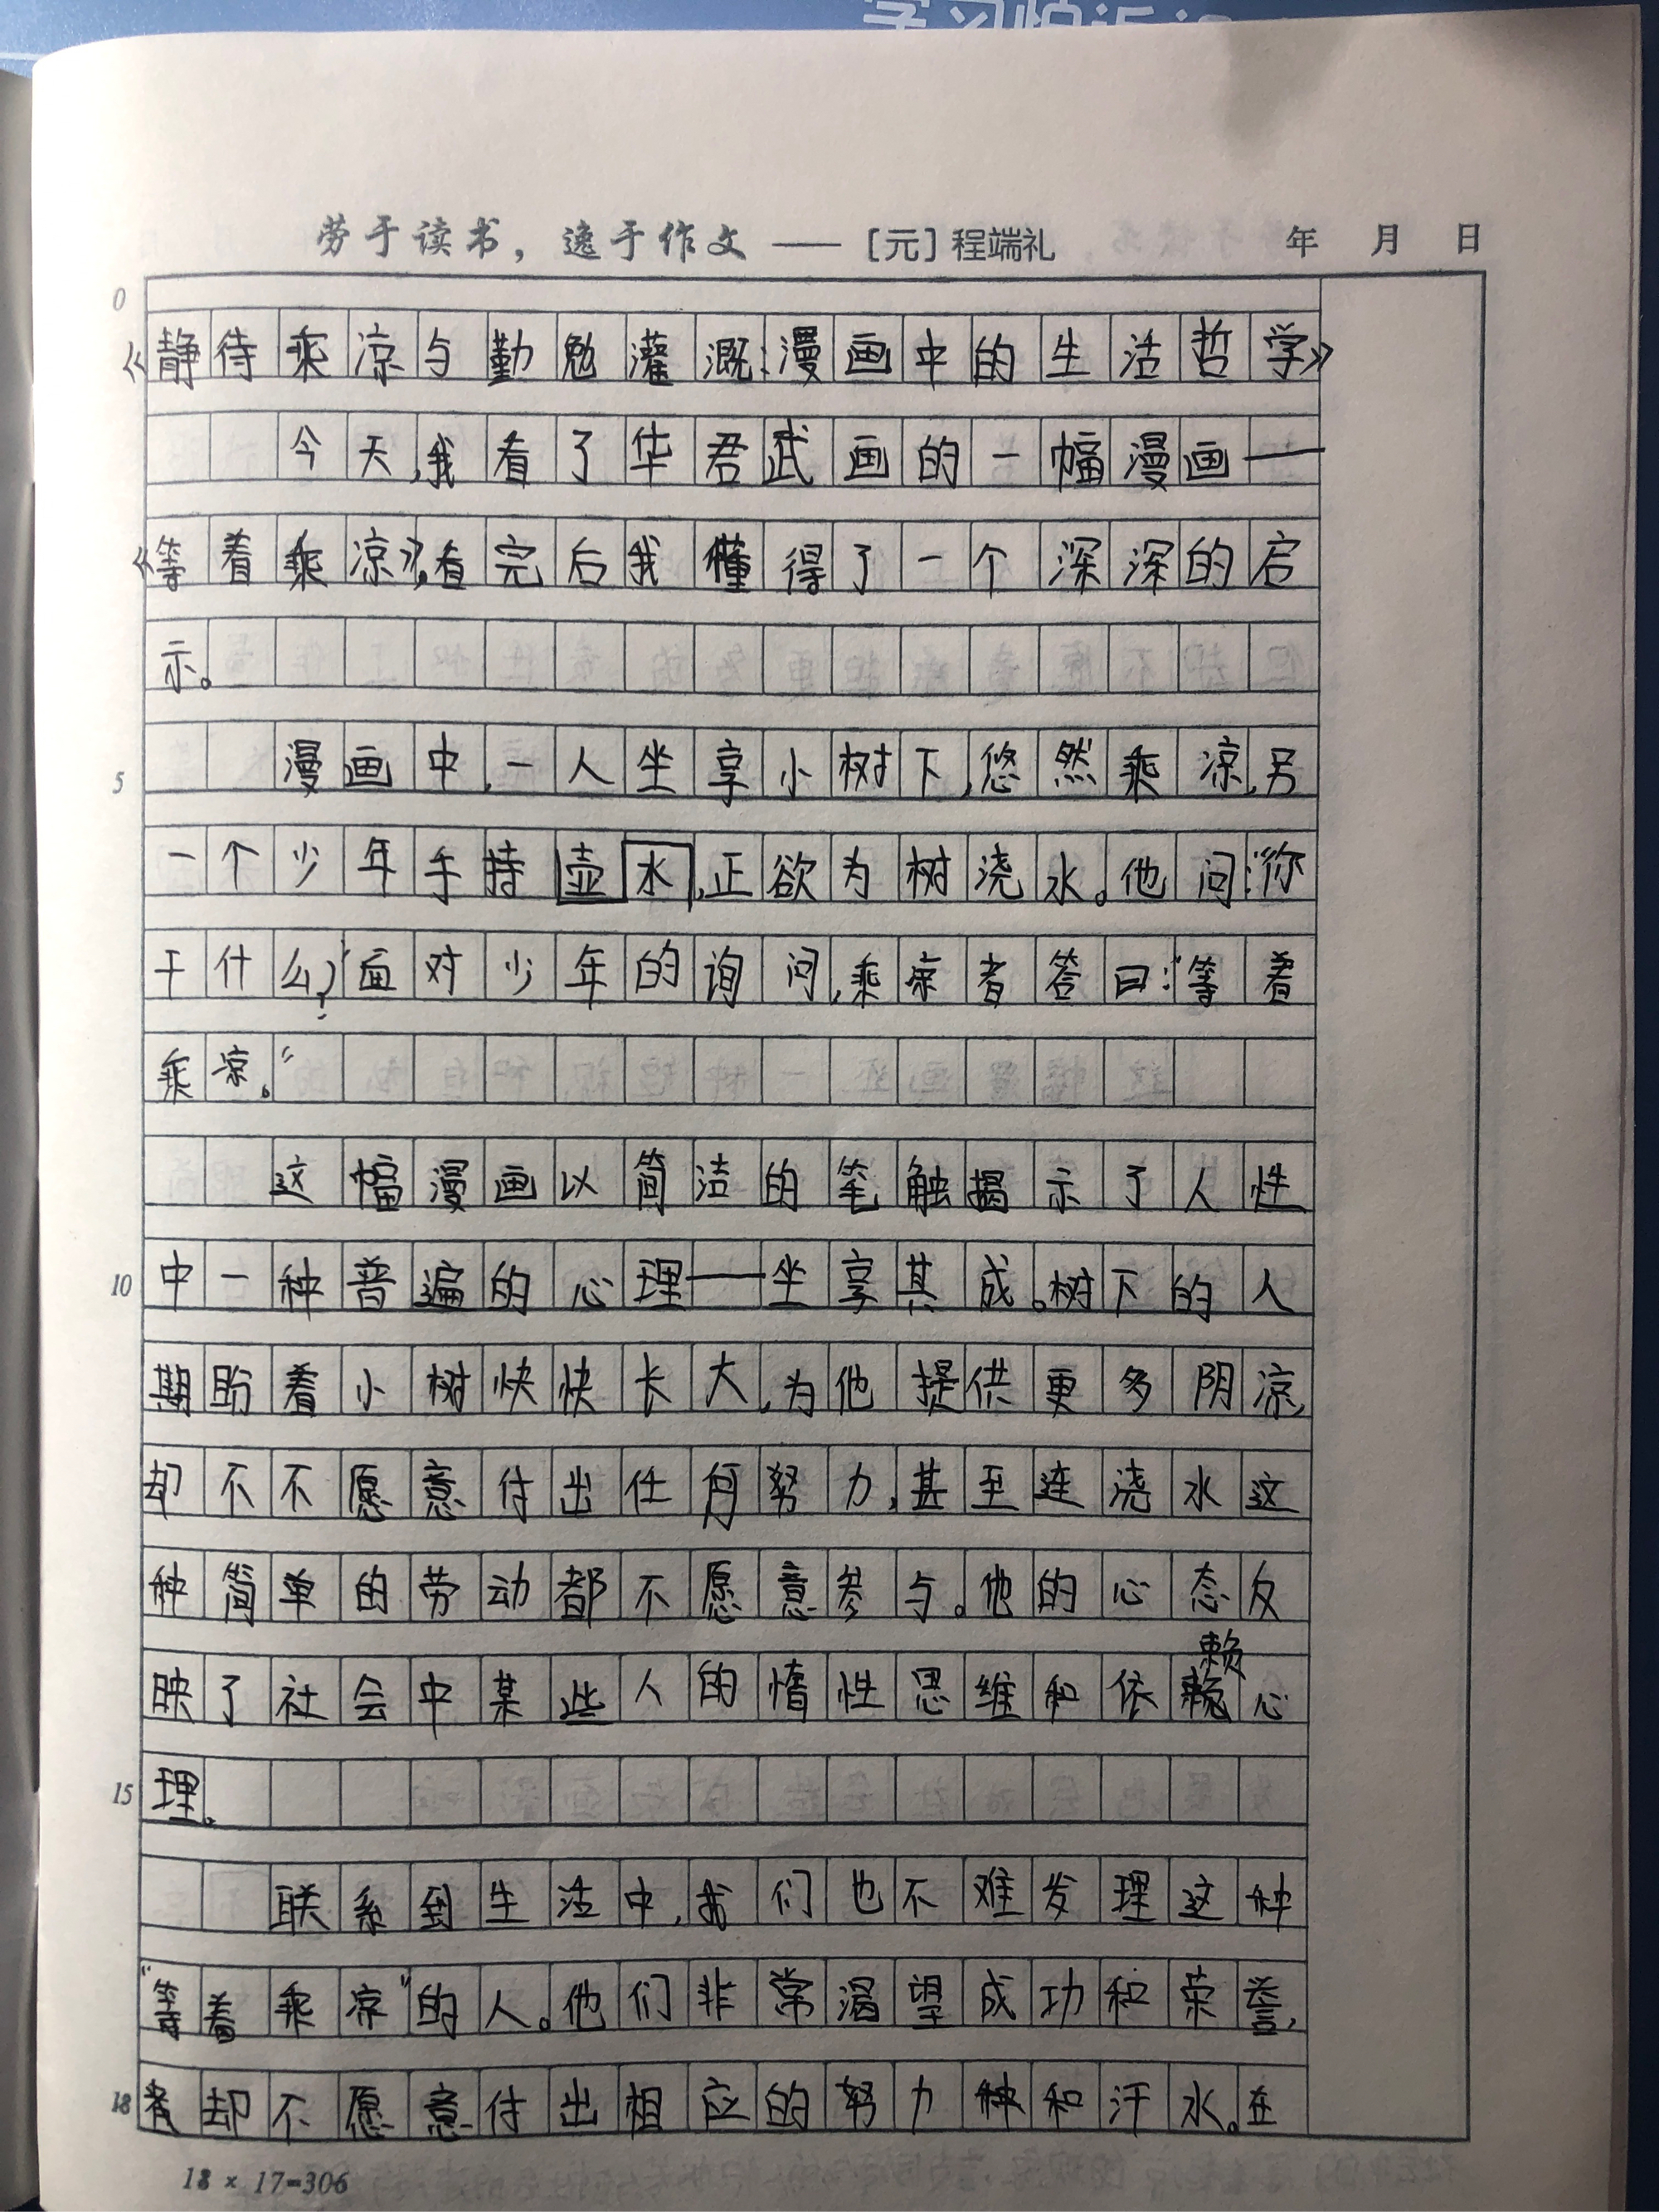 劳于读书，逸于作文 ——［元］程端礼 年 月 日
0
《静待乘凉与勤勉灌溉：漫画中的生活哲学》
今天，我看了华君武画的一幅漫画——
《等着乘凉》，看完后我懂得了一个深深的启
示。
5 漫画中，一人坐享小树下，悠然乘凉，另
一个少年手持壶水，正欲为树浇水。他问：“你
干什么？”面对少年的询问，乘凉者答曰：“等着
乘凉。”
这幅漫画以简洁的笔触揭示了人性
10 中一种普遍的心理——坐享其成。树下的人
期盼着小树快快长大，为他提供更多阴凉，
却不不愿意付出任何努力，甚至连浇水这
种简单的劳动都不愿意参与。他的心态反
映了社会中某些人的惰性思维和依赖心
15 理。
联系到生活中，我们也不难发理这种
“等着乘凉”的人。他们非常渴望成功和荣誉，
18 却不愿意付出相应的努力种和汗水。在
18 × 17=306